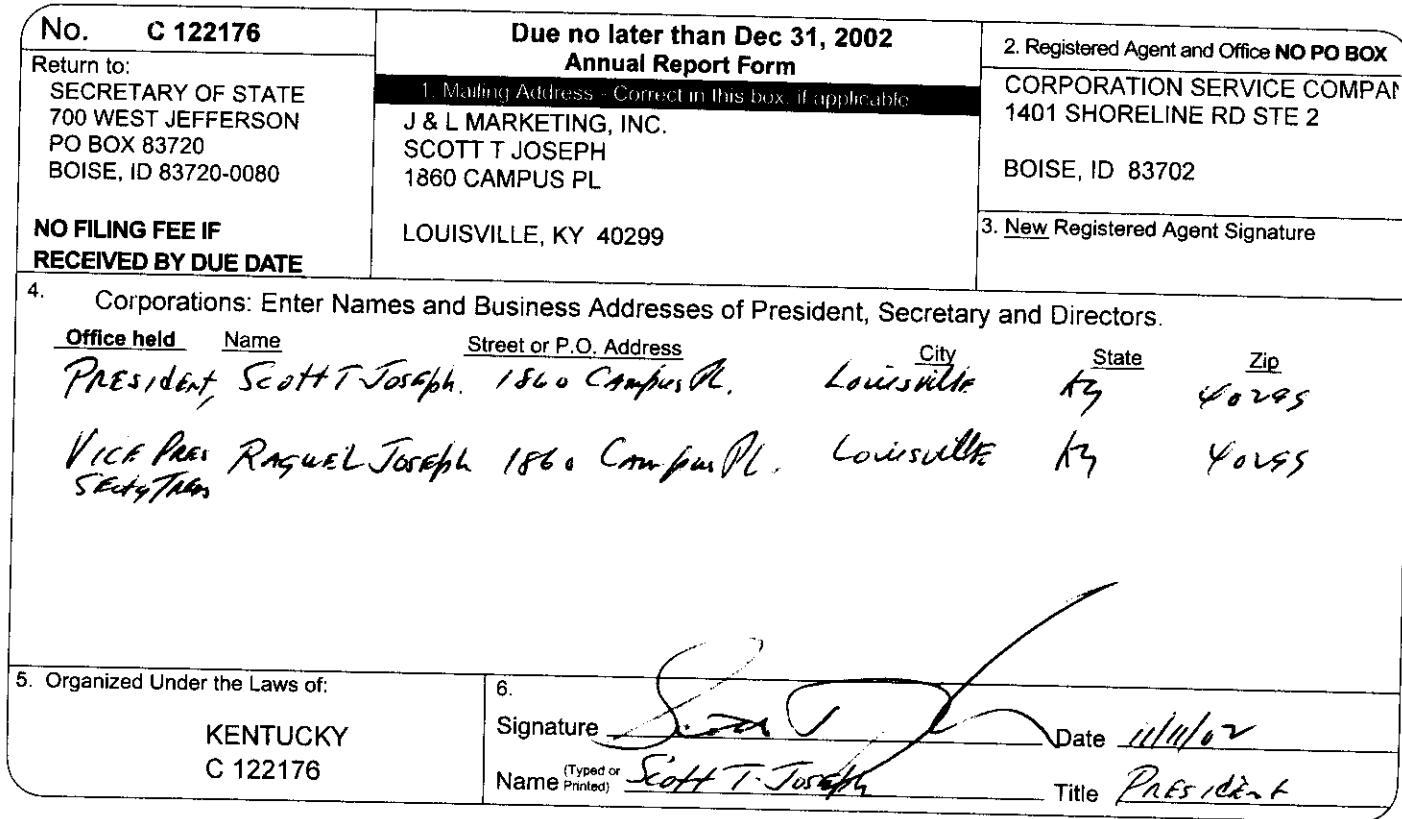 No. C 122176
Return to:
SECRETARY OF STATE
700 WEST JEFFERSON
PO BOX 83720
BOISE, ID 83720-0080
NO FILING FEE IF
RECEIVED BY DUE DATE
Due no later than Dec 31, 2002
Annual Report Form
1. Mailing Address - Correct in this box, if applicable
J & L MARKETING, INC.
SCOTT T JOSEPH
1860 CAMPUS PL
LOUISVILLE, KY 40299
2. Registered Agent and Office NO PO BOX
CORPORATION SERVICE COMPAN
1401 SHORELINE RD STE 2
BOISE, ID 83702
3. New Registered Agent Signature
4. Corporations: Enter Names and Business Addresses of President, Secretary and Directors.
Office held Name Street or P.O. Address City State Zip
President, Scott T Joseph. 1860 Campus Pl. Louisville Ky 40299
Vice Pres Raquel Joseph 1860 Campus Pl. Louisville Ky 40299
Secty/Treas
5. Organized Under the Laws of:
KENTUCKY
C 122176
6.
Signature Date 11/11/02
Name (Typed or Printed) Scott T. Joseph Title President